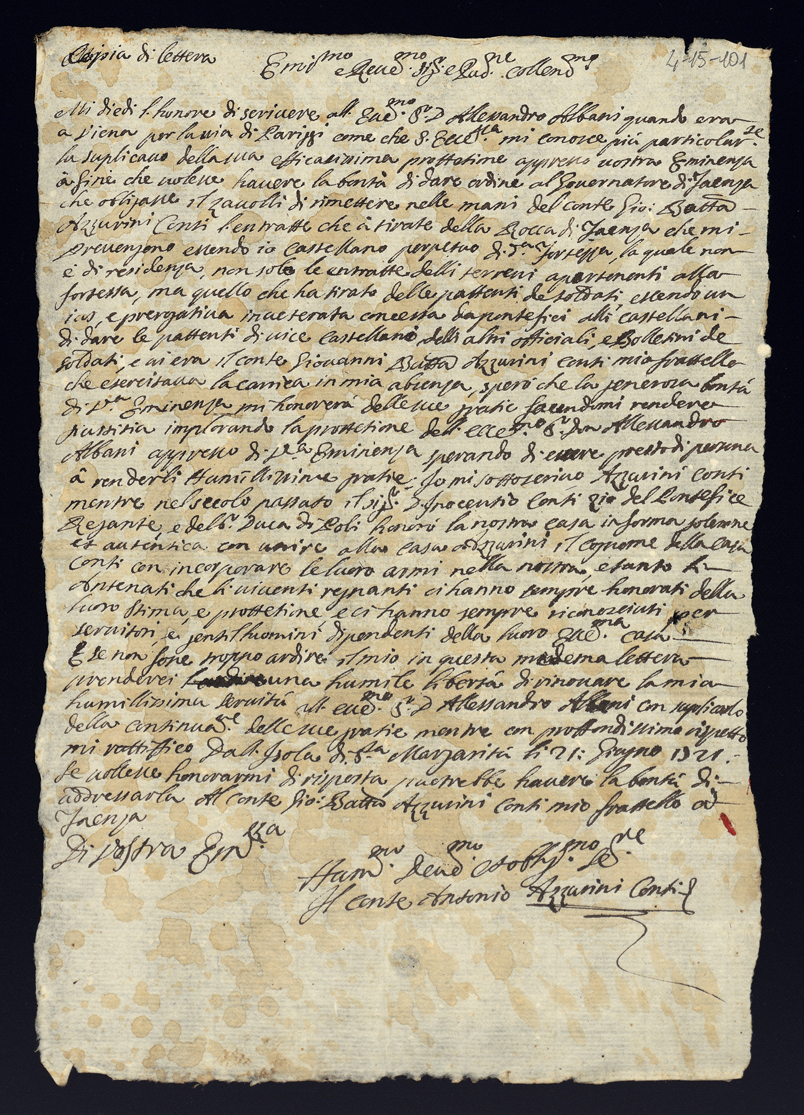 Coppia di lettera
4-15-101
Emi.mo
e Reue.mo Sig.re e Pad.ne Collend.mo
Mi diedi l'honore di scriuere all' Ecc.mo S.r D Allessandro Albani quando era
a Viena per la uia di Pariggi come che S. Ecc.za mi conosce più particolar.te
la suplicauo della sua efficacissima prottetione appresso uostra Eminenza
à fine che uolesse hauere la bontà di dare ordine al Gouernatore di Faenza
che obligasse il Zauolli di rimettere nelle mani del conte Gio: Batta
Azzurini Conti l'entratte che à tirate della Rocca di Faenza che mi
preuengono essendo io Castellano perpetuo di d.a fortezza, la quale non
è di residenza, non solo le entratte delli terreni apartenenti alla
fortezza, ma quello che ha tirato delle pattenti de soldati, essendo un
ius, e prerogatiua inueterata concessa da pontefici alli castellani
di dare le pattenti di uice castellano, delli altri officiali, e Bolletini de
soldati, e ui era il conte Giouanni Batta Azzurini Conti mio frattello
che esercitaua la carica in mia absenza, spero che la generosa bontà
di V.ra Eminenza mi honorerà delle sue gratie facendomi rendere
giustitia implorando la prottetione dell' ecce.mo S.r Don Allessandro
Albani appresso di V.ra Eminenza sperando di essere presto di persona
à renderli Humillissime gratie. Io mi sottoscriuo Azzurini Conti
mentre nel secolo passato il sig.r D. Inocentio Conti zio del Pontefice
Regante, e del S.r Duca di Poli honorò la nostra casa in forma solemne
et autentica con unire alla casa Azzurini il cognome della casa
Conti con incorporare le loro armi nella nostra, e tanto li
Antenati che li uiuenti regnanti ci hanno sempre honorati della
luoro stima, e prottetine, e ci hanno sempre riconosciuti per
seruitori, e gentil'huomini dipendenti della luoro Ecc.ma casa
E se non fosse troppo ardire il mio in questa medema lettera
prenderei una humile libertà di rinouare la mia
humillissima seruitù all' ecce.mo S.r D Allessandro Albani con suplicarlo
della continua.ne delle sue gratie mentre con proffondissimo rispetto
mi rattiffico Dall' Isola di S.ta Margarita li 21: Giugno 1721.
Se uolesse honorarmi di risposta puotrebbe hauere la bontà di
addressarla Al conte Gio: Batta Azzurini Conti mio frattello a
Faenza
Di Vostra Em.za
Hum.mo Deuo.mo et obblig.mo Se.re
Il Conte Antonio Azzurini Conti